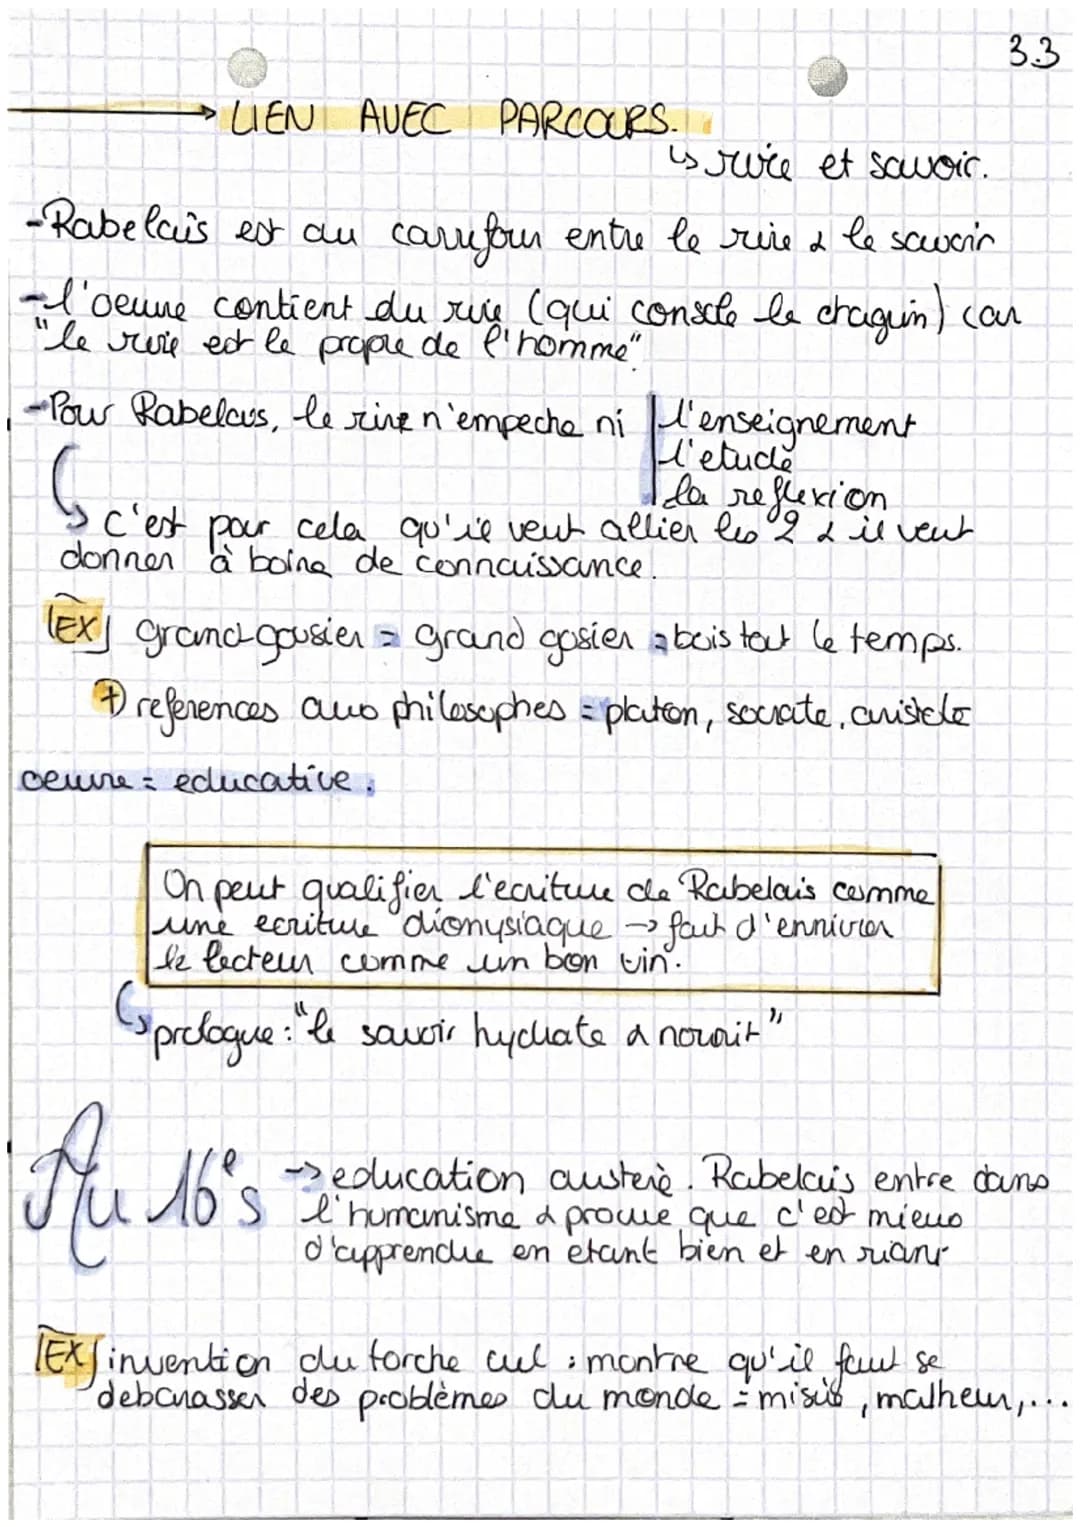 3.3
→ LIEN AVEC PARCOURS.
↳ rire et savoir.
-Rabelais est au carrefour entre le rire & le savoir
-l'oeuvre contient du rire (qui console le chagrin) car
"le rire est le propre de l'homme"
-Pour Rabelais, le rire n'empeche ni | l'enseignement
l'etude
la reflexion
↳ c'est pour cela qu'il veut allier les 2 & il veut
donner à boire de connaissance.
EX grand-gousier = grand gosier = bois tout le temps.
+ references aux philosophes = platon, socrate, aristote
oeuvre = educative.
On peut qualifier l'ecriture de Rabelais comme
une ecriture dionysiaque → fait d'ennivrer
le lecteur comme un bon vin.
↳ prologue : "le savoir hydrate & nourrit"
Au 16e s → education austere. Rabelais entre dans
l'humanisme & prouve que c'est mieux
d'apprendre en etant bien et en riant
EX invention du torche cul : montre qu'il faut se
debarasser des problèmes du monde = misère, malheur,...